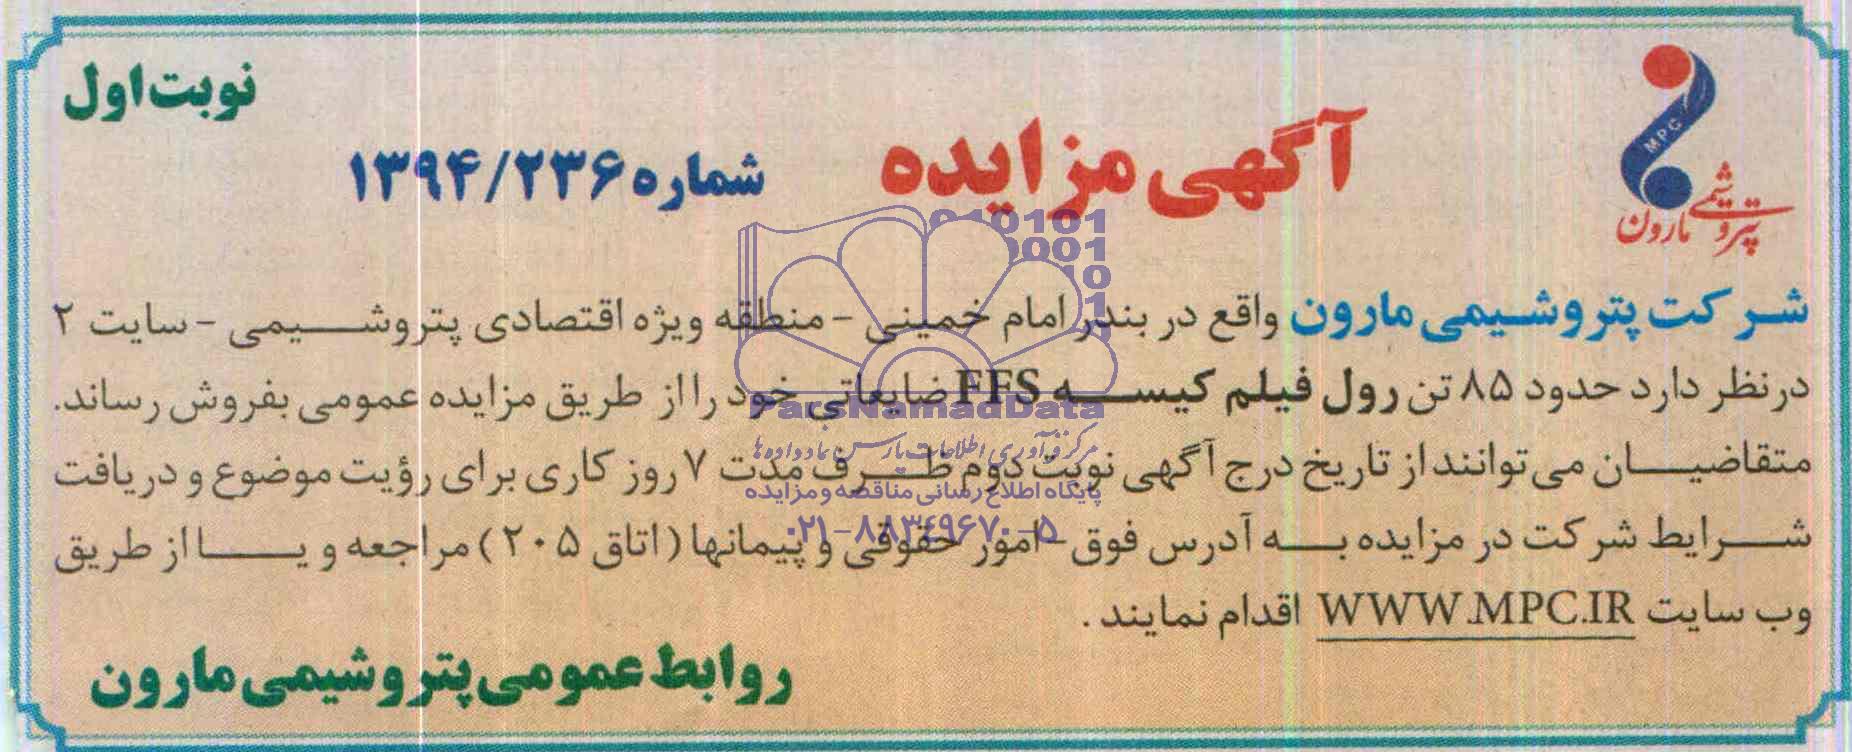 نوبت اول
MPC
پتروشیمی مارون
آگهی مزایده
شماره ۱۳۹۴/۲۳۶
شرکت پتروشیمی مارون واقع در بندر امام خمینی - منطقه ویژه اقتصادی پتروشیمی - سایت ۲
درنظر دارد حدود ۸۵ تن رول فیلم کیسه FFS ضایعاتی خود را از طریق مزایده عمومی بفروش رساند.
متقاضیان می‌توانند از تاریخ درج آگهی نوبت دوم ظرف مدت ۷ روز کاری برای رؤیت موضوع و دریافت
شرایط شرکت در مزایده به آدرس فوق - امور حقوقی و پیمانها (اتاق ۲۰۵) مراجعه و یا از طریق
وب سایت WWW.MPC.IR اقدام نمایند.
روابط عمومی پتروشیمی مارون
010101
0001
10
1
ParsNamadData
مرکز فرآوری اطلاعات پارس نماد داده‌ها
پایگاه اطلاع رسانی مناقصه و مزایده
۰۲۱-۸۸۳۴۹۶۷۰-۵